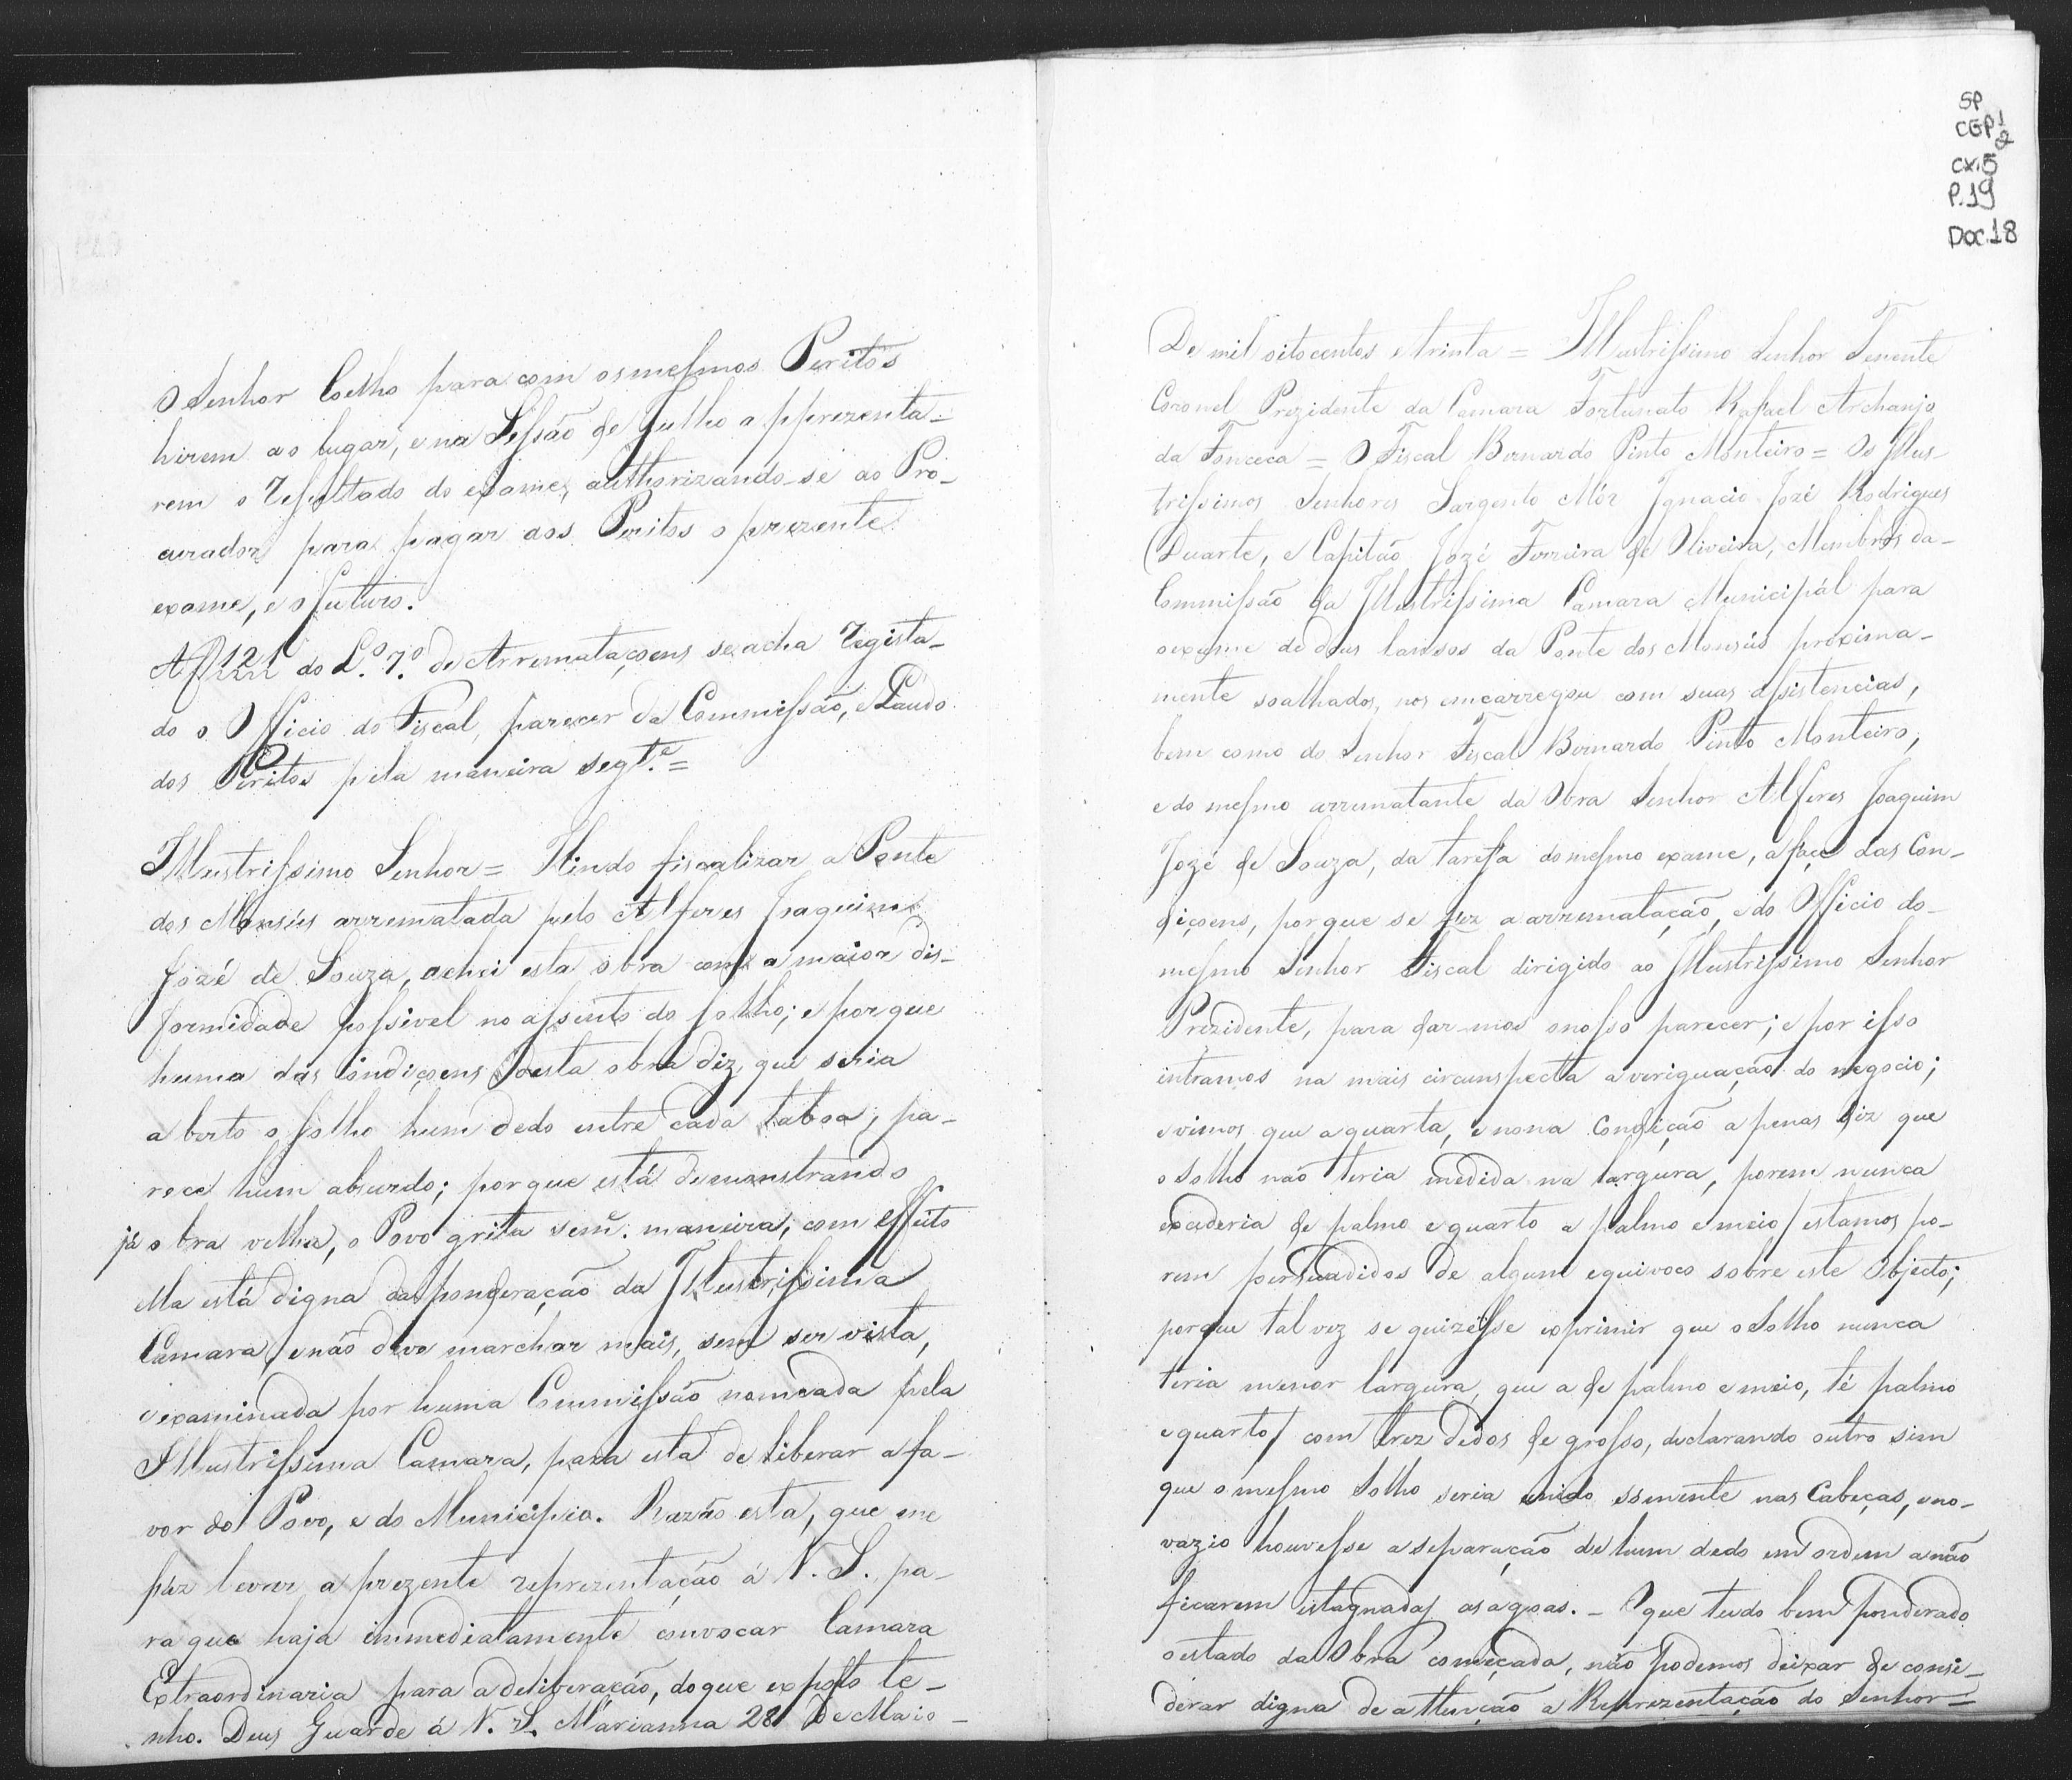 O Senhor Coelho para com os mesmos Peritos
hirem ao lugar, e na Sessão de Julho apprezenta-
rem o Resultado do exame, authorizando-se ao Pro-
curador para pagar aos Peritos o prezente
exame, e o futuro.
A f 121 do L.º 7.º de Arremataçoens se acha Regista-
do o Officio do Fiscal, parecer da Commissão, e Laudo
dos Peritos pela maneira segt.e =
Illustrissimo Senhor = Hindo fiscalizar a Ponte
dos Monsús arrematada pelo Alferes Joaquim
Jozé de Souza, achei esta obra com a maior dis-
formidade possivel no assento do solho; e porque
huma das Condiçoens desta obra diz, que seria
aberto o solho hum dedo entre cada taboa, pa-
rece hum absurdo; porque está demonstrando
já obra velha, o Povo grita sem. maneira; com effeito
ella está digna da ponderação da Illustrissima
Camara, e não deve marchar mais, sem ser vista,
e examinada por huma Commissão nomeada pela
Illustrissima Camara, para esta deliberar a fa-
vor do Povo, e do Municipio. Razão esta, que me
fez levar a prezente reprezentação á V. S. pa-
ra que haja immediatamente convocar Camara
Extraordinaria para a deliberação, do que exposto te-
nho. Deus Guarde á V. S. Marianna 28 de Maio-
SP
CGP1
2
CX.5
P.19
Doc.18
De mil oitocentos e trinta = Illustrissimo Senhor Tenente
Coronel Prezidente da Camara Fortunato Rafael Archanjo
da Fonceca = O Fiscal Bernardo Pinto Monteiro = Os Illus-
trissimos Senhores Sargento Mór Ignacio Jozé Rodrigues
Duarte, e Capitão Jozé Ferreira de Oliveira, Membros da-
Commissão da Illustrissima Camara Municipál para
o exame de dous lansos da Ponte dos Monsús proxima-
mente soalhados, nos emcarregou com suas assistencias,
bem como do Senhor Fiscal Bernardo Pinto Monteiro,
e do mesmo arrematante da Obra Senhor Alferes Joaquim
Jozé de Souza, da tarefa do mesmo exame, a face das Con-
diçoens, porque se fez a arrematação, e do Officio do-
mesmo Senhor Fiscal dirigido ao Illustrissimo Senhor
Prezidente, para dar-mos o nosso parecer; e por isso
intramos na mais circunspecta averiguação do negocio;
e vimos que a quarta, e nona Condição apenas diz que
o Solho não teria medida na largura, porem nunca
excederia de palmo e quarto a palmo e meio / estamos po-
rem persuadidos de algum equivoco sobre este Objecto;
porque talvez se quizesse exprimir que o Solho nunca
teria menor largura, que a de palmo e meio, té palmo
e quarto / com trez dedos de grosso, declarando outro sim
que o mesmo Solho seria unido somente nas Cabeças, e no-
vazio houvesse a separação de hum dedo em ordem a não
ficarem estagnadas as agoas. - O que tudo bem ponderado
o estado da Obra começada, não podemos deixar de consi-
derar digna de attenção a Reprezentação do Senhor =